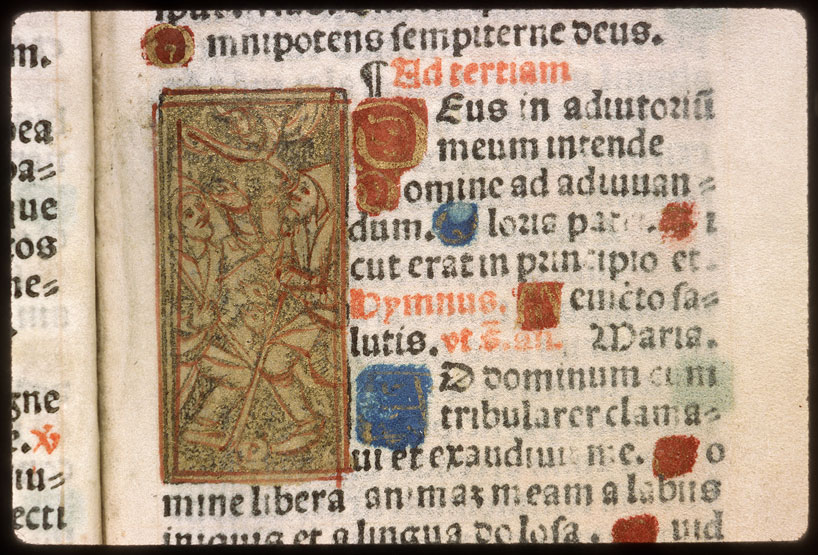 m.
mnipotens sempiterne deus.
¶ Ad tertiam
Deus in adiutoriū
meum intende
Domine ad adiuuan=
dum. Gloria patri. Si
cut erat in principio et.
Hymnus. Memēto sa=
lutis. Maria.
AD dominum cum
tribularer clama=
ui et exaudiuit me. Do
mine libera animaʒ meam a labiis
iniquis et a lingua dolosa. Quid